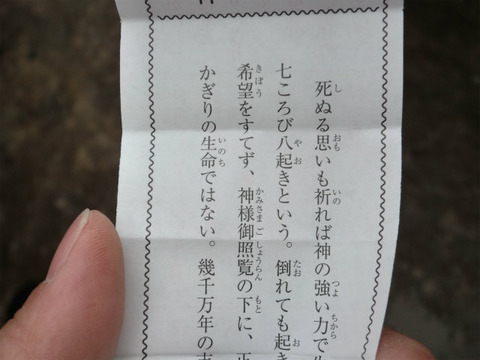 死ぬる思いも祈れば神の強い力で
七ころび八起きという。倒れても起き
希望をすてず、神様御照覧の下に、正
かぎりの生命ではない。幾千万年の